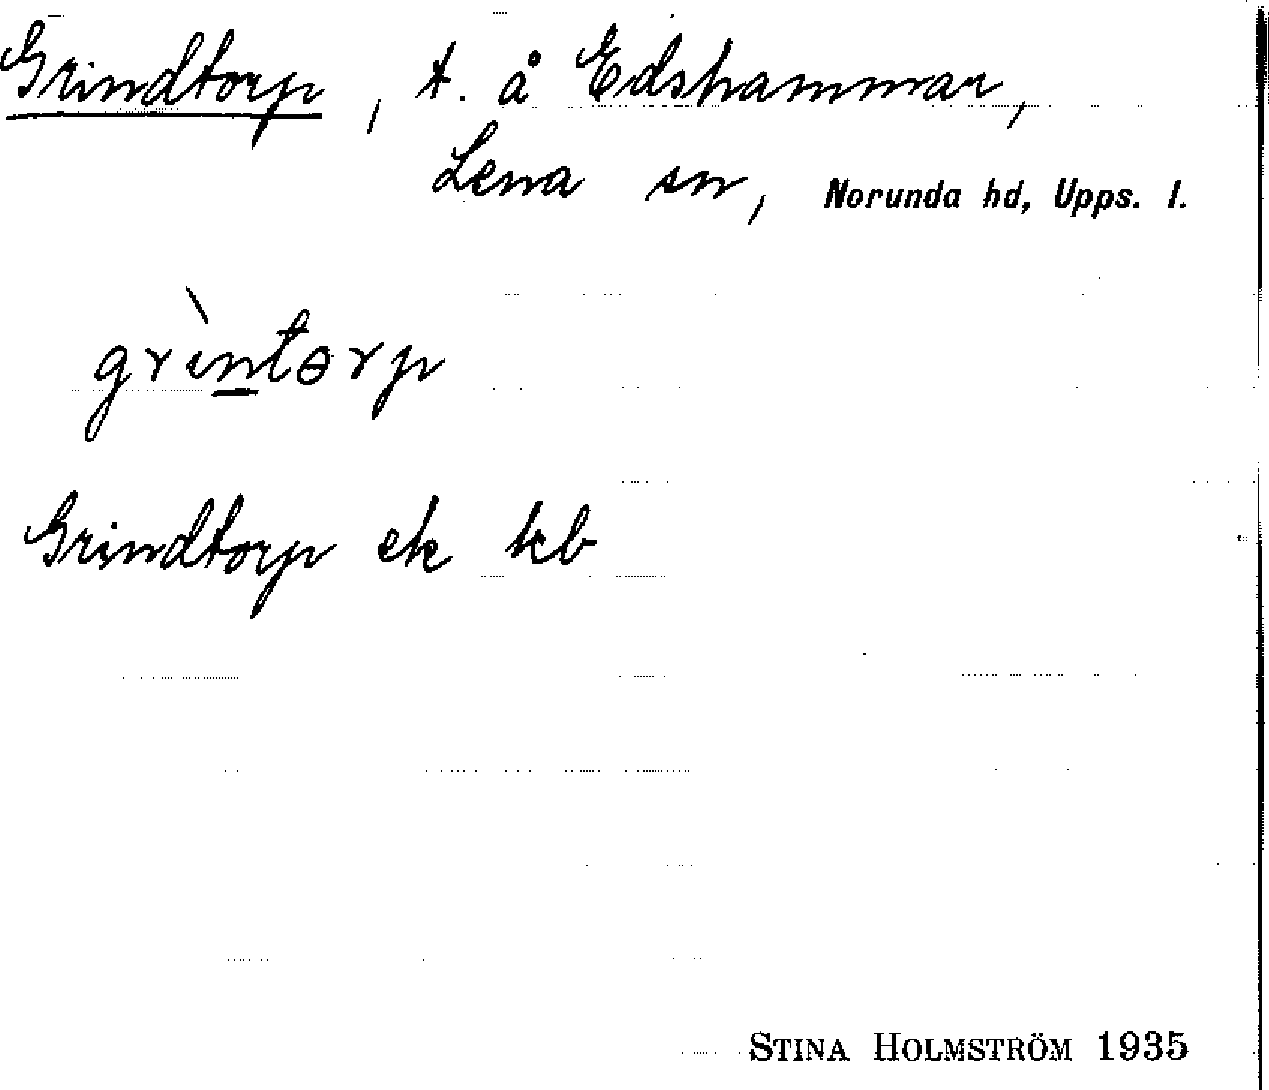 Grindtorp, t. å Edshammar,
Lena sn, Norunda hd, Upps. l.
grìntɵrp
Grindtorp ek kb
STINA HOLMSTRÖM 1935